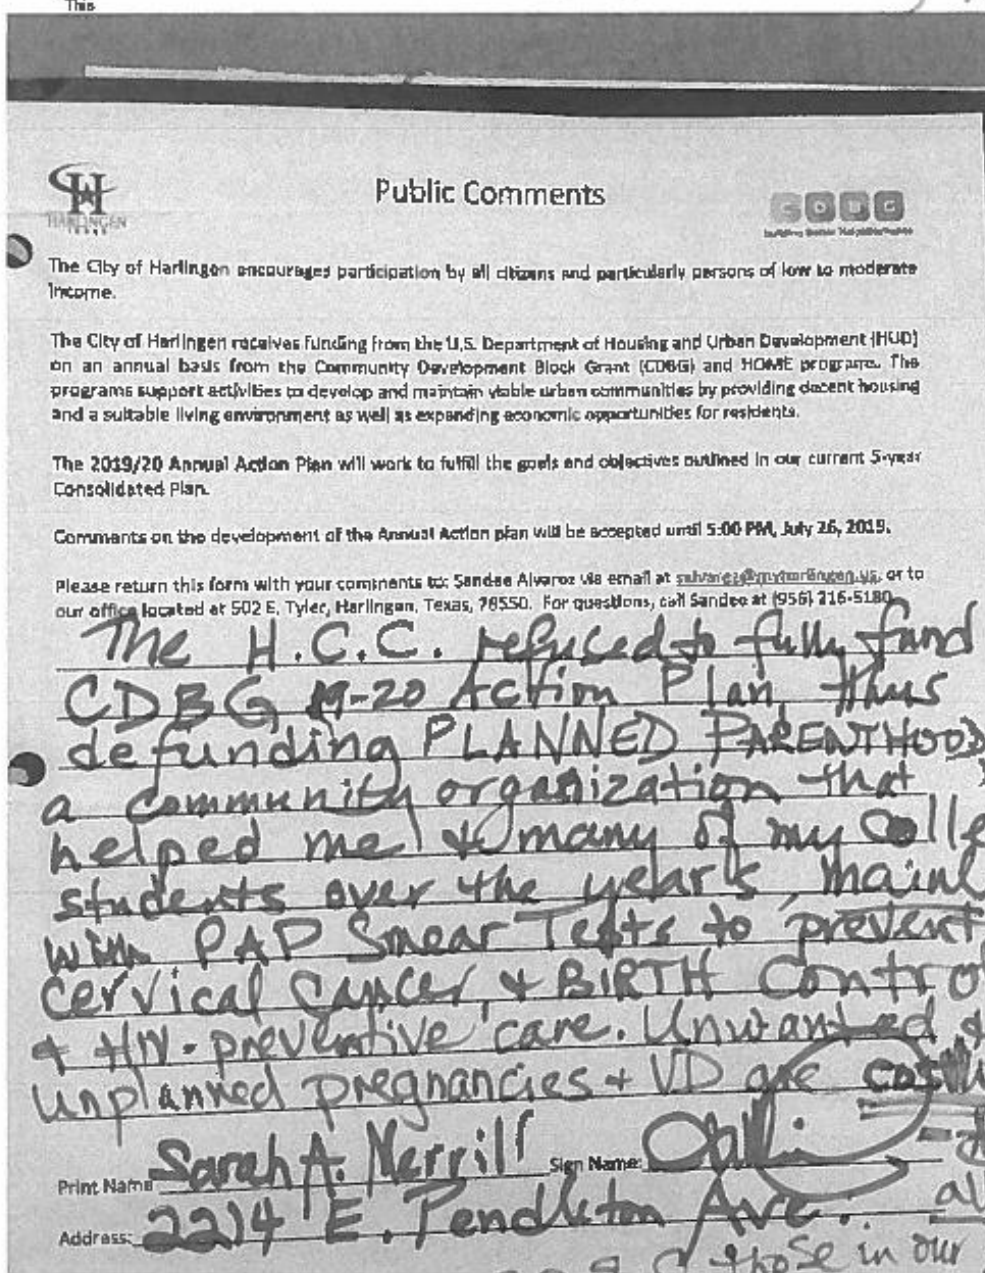 This
HARLINGEN
TEXAS
Public Comments
CDBG
The City of Harlingen encourages participation by all citizens and particularly persons of low to moderate
Income.
The City of Harlingen receives funding from the U.S. Department of Housing and Urban Development (HUD)
on an annual basis from the Community Development Block Grant (CDBG) and HOME programs. The
programs support activities to develop and maintain viable urban communities by providing decent housing
and a suitable living environment as well as expanding economic opportunities for residents.
The 2019/20 Annual Action Plan will work to fulfill the goals and objectives outlined in our current 5-year
Consolidated Plan.
Comments on the development of the Annual Action plan will be accepted until 5:00 PM, July 26, 2019.
Please return this form with your comments to: Sandee Alvarez via email at salvarez@myharlingen.us, or to
our office located at 502 E, Tyler, Harlingen, Texas, 78550. For questions, call Sandee at (956) 216-5180.
The H.C.C. refused to fully fund
CDBG 19-20 Action Plan, thus
defunding PLANNED PARENTHOOD
a community organization that
helped me & many of my Colle
students over the years, mainl
with PAP Smear Tests to prevent
Cervical Cancer, & BIRTH Control
& HIV-preventive care. Unwanted &
unplanned pregnancies & VD are
Print Name Sarah A. Merrill Sign Name:
Address: 2214 E. Pendleton Ave.
those in our